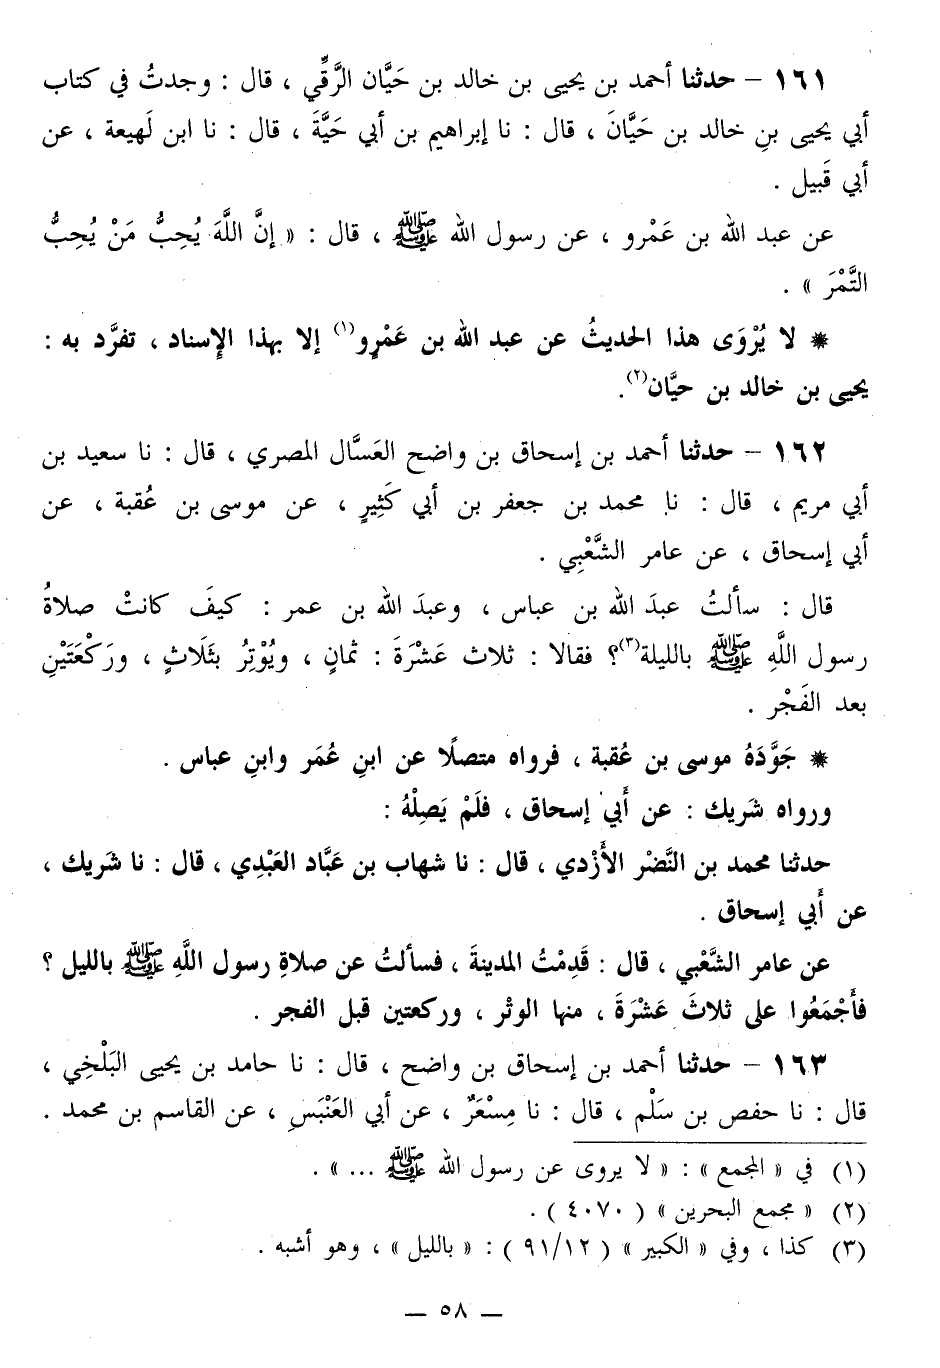 ١٦١ – حدثنا أحمد بن يحيى بن خالد بن حَيَّان الرَّقِّي ، قال : وجدتُ في كتاب
أبي يحيى بنِ خالد بن حَيَّانَ ، قال : نا إبراهيم بن أبي حَيَّةَ ، قال : نا ابن لَهيعة ، عن
أبي قَبيل .
عن عبد الله بن عَمْرو ، عن رسول الله ﷺ ، قال : « إنَّ اللَّهَ يُحِبُّ مَنْ يُحِبُّ
التَّمْرَ » .
* لا يُرْوَى هذا الحديثُ عن عبد الله بن عَمْرٍو(١) إلا بهذا الإسناد ، تفرَّد به :
يحيى بن خالد بن حيَّان(٢).
١٦٢ – حدثنا أحمد بن إسحاق بن واضح العَسَّال المصري ، قال : نا سعيد بن
أبي مريم ، قال : نا محمد بن جعفر بن أبي كَثِيرٍ ، عن موسى بن عُقبة ، عن
أبي إسحاق ، عن عامر الشَّعْبِي .
قال : سألتُ عبدَ الله بن عباس ، وعبدَ الله بن عمر : كيفَ كانتْ صلاةُ
رسول اللَّهِ ﷺ بالليلة(٣)؟ فقالا : ثلاث عَشْرَةَ : ثمانٍ ، ويُوْتِرُ بثَلَاثٍ ، ورَكْعَتَيْنِ
بعد الفَجْر .
* جَوَّدَهُ موسى بن عُقبة ، فرواه متصلًا عن ابنِ عُمَر وابنِ عباس .
ورواه شَريك : عن أَبي إسحاق ، فلَمْ يَصِلْهُ :
حدثنا محمد بن النَّضْر الأَزْدي ، قال : نا شهاب بن عَبَّاد العَبْدِي ، قال : نا شَريك ،
عن أَبي إسحاق .
عن عامر الشَّعْبي ، قال : قَدِمْتُ المدينةَ ، فسألتُ عن صلاةِ رسول اللَّهِ ﷺ بالليل ؟
فأَجْمَعُوا على ثلاثَ عَشْرَةَ ، منها الوتْر ، وركعتين قبل الفجر .
١٦٣ – حدثنا أحمد بن إسحاق بن واضح ، قال : نا حامد بن يحيى البَلْخِي ،
قال : نا حفص بن سَلْم ، قال : نا مِسْعَرٌ ، عن أبي العَنْبَسِ ، عن القاسم بن محمد .
(١) في « المجمع » : « لا يروى عن رسول الله ﷺ ... » .
(٢) « مجمع البحرين » ( ٤٠٧٠ ) .
(٣) كذا ، وفي « الكبير » ( ٩١/١٢ ) : « بالليل » ، وهو أشبه .
— ٥٨ —